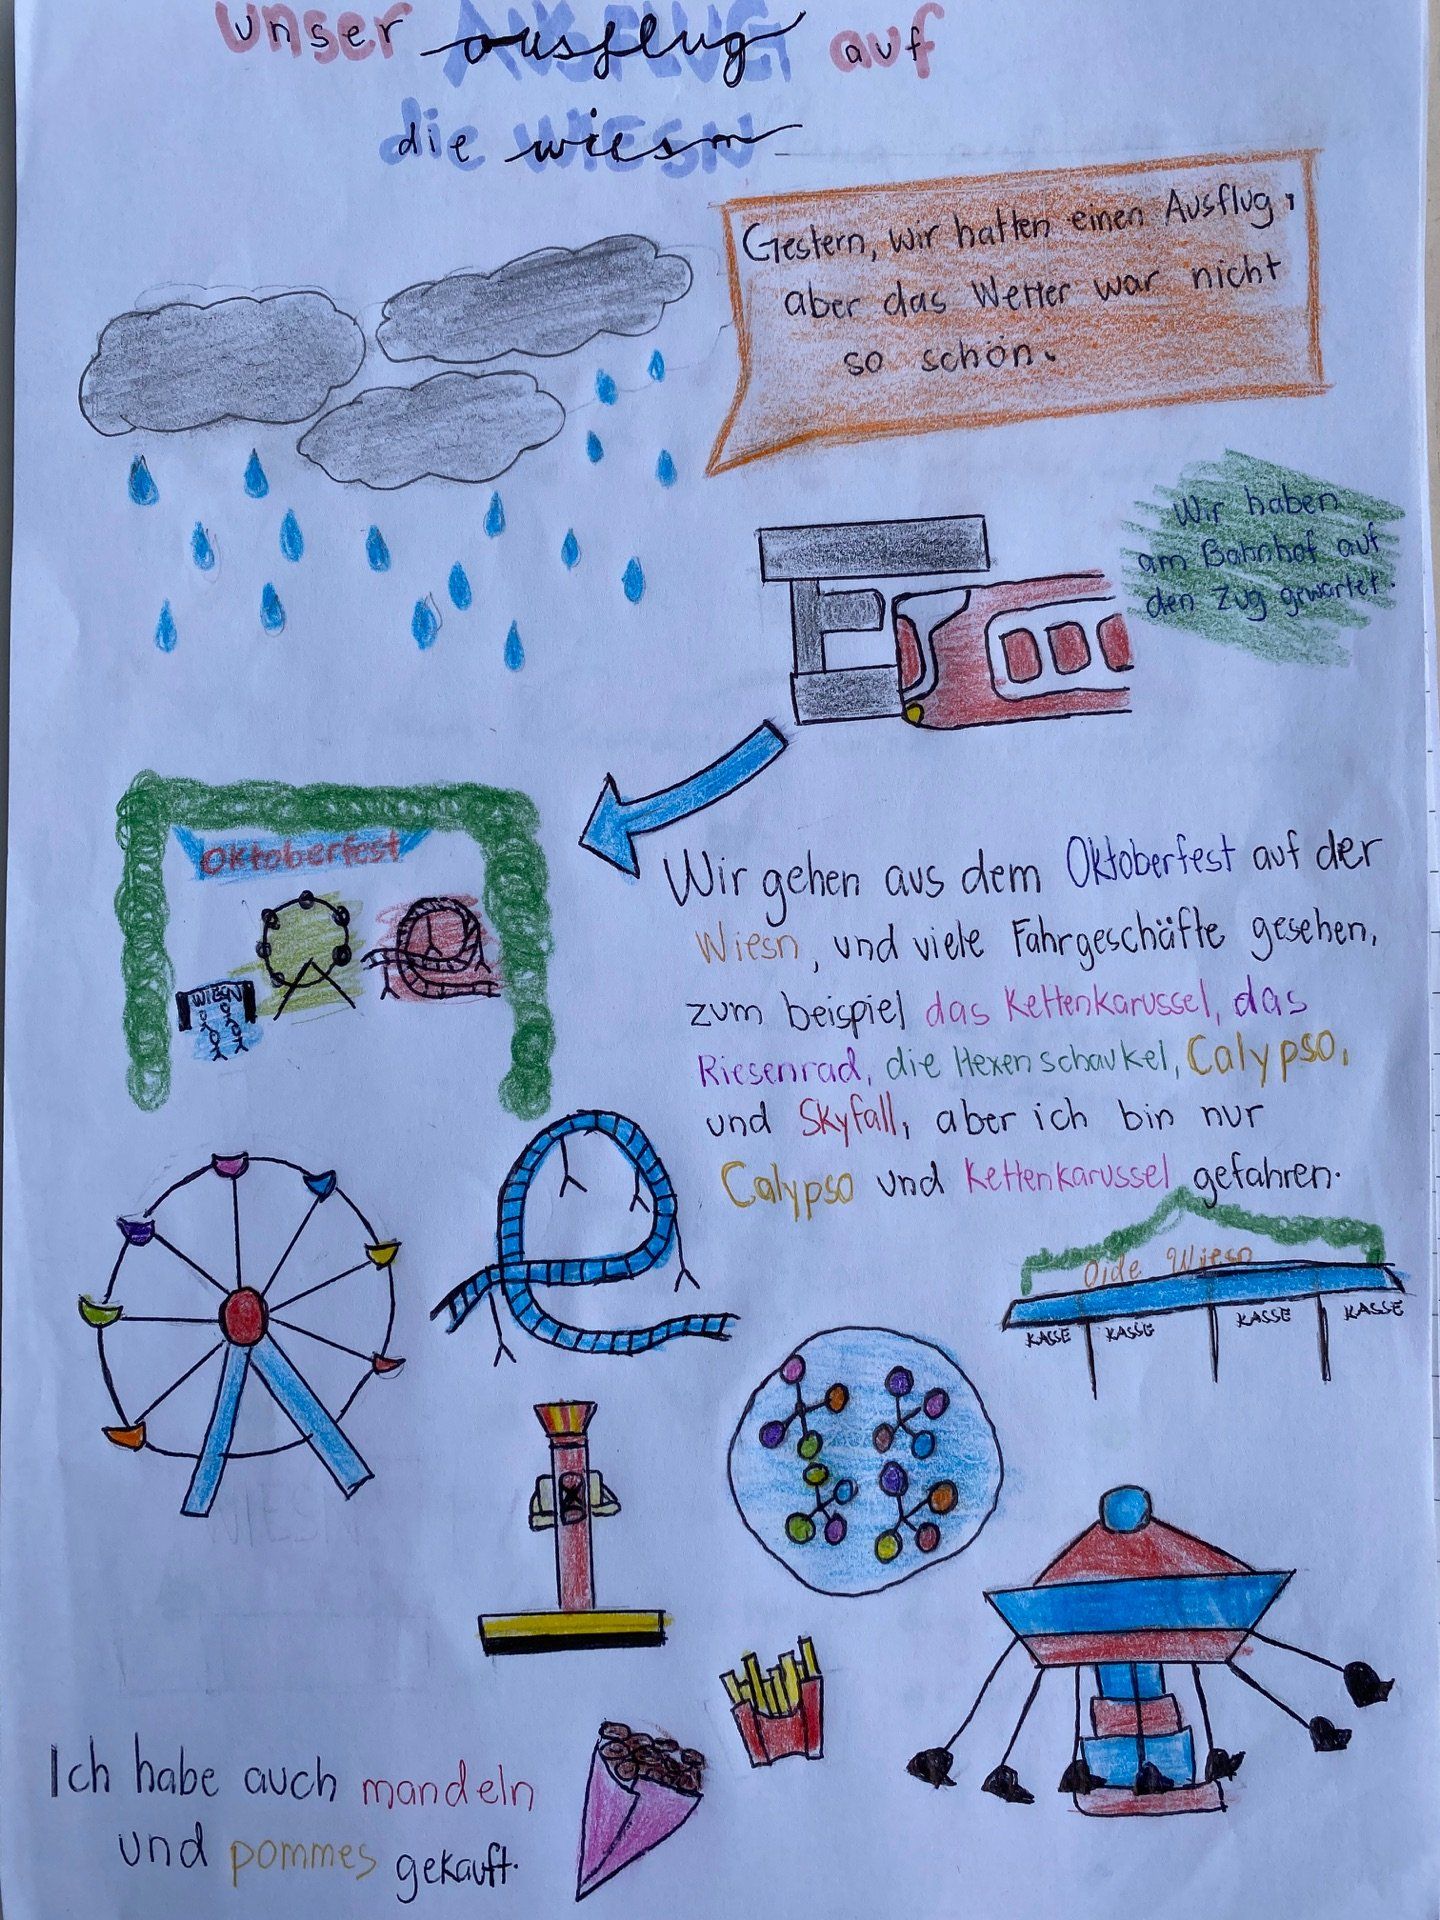 unser ausflug auf
die wiesn
Gestern, wir hatten einen Ausflug,
aber das Wetter war nicht
so schön.
Wir haben
am Bahnhof auf
den Zug gewartet.
Oktoberfest
WIESN
Wir gehen aus dem Oktoberfest auf der
Wiesn, und viele Fahrgeschäfte gesehen,
zum beispiel das Kettenkarussel, das
Riesenrad, die Hexenschaukel, Calypso,
und Skyfall, aber ich bin nur
Calypso und Kettenkarussel gefahren.
Oide Wiesn
KASSE KASSE KASSE KASSE
Ich habe auch mandeln
und pommes gekauft.